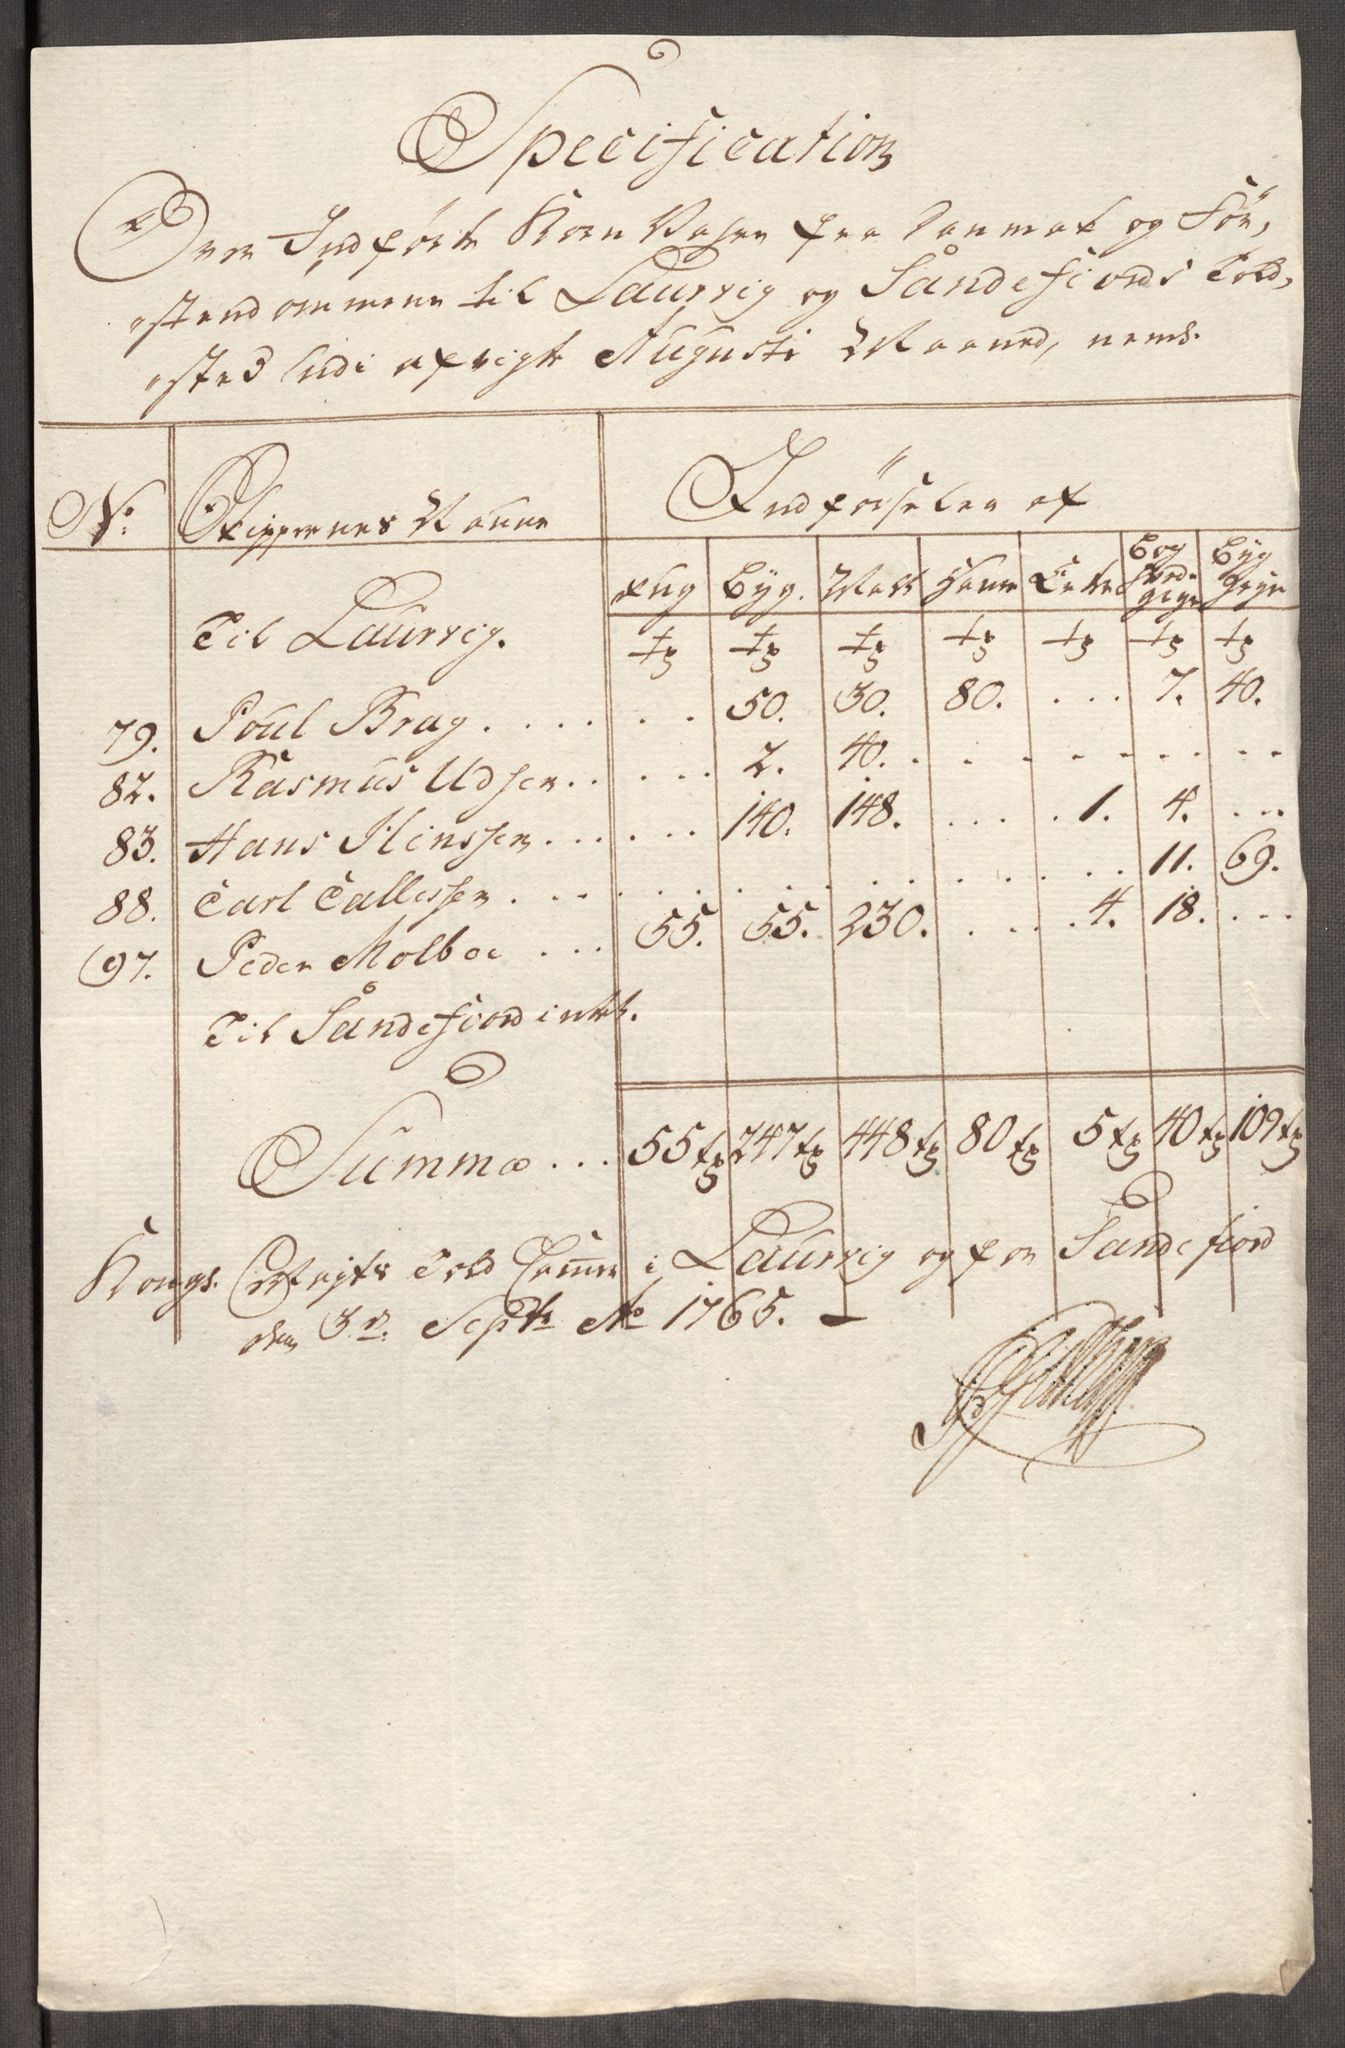 Specification
Over Indförte Korn Vahrer fra Danmark og För,
stendommene til Laurvig og Sandefiords Told,
sted udi afvigte Augusti Maaned, neml.
No. Skippernes Nafne Indförselen af
Rug Byg. Malt Havre Erter Bog hvede gryn Byg gryn
Til Laurvig. tr tr tr tr tr tr tr
79. Poul Brag . . . . . . 50. 30. 80. . . . 7. 40.
82. Rasmus Udsen . . . . . 2. 40. . . . . . . . .
83. Hans Stenssen . . . . . . 140. 148. . . . . 1. 4. . . .
88. Carl Callessen . . . . . . . . . . . . . 11. 69.
97. Peder Molboe . . . 55. 55. 230. . . . . 4. 18. . . .
Til Sandefiord intet.
Summa . . . 55 tr 247 tr 448 tr 80 tr 5 tr 40 tr 109 tr
Kongl. Mayts Told Cammer i Laurvig og for Sandefiord
den 3de. Septr. Ao 1765. –